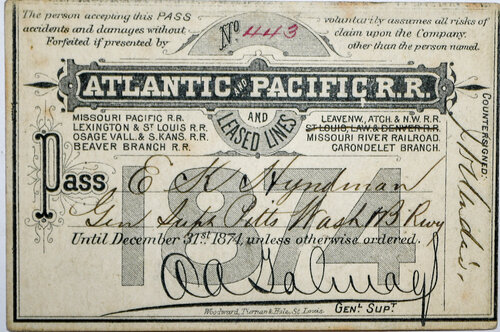 The person accepting this PASS voluntarily assumes all risks of
accidents and damages without claim upon the Company.
Forfeited if presented by other than the person named.
No 443
ATLANTIC AND PACIFIC R.R.
AND
LEASED LINES
MISSOURI PACIFIC R.R.
LEXINGTON & ST LOUIS R.R.
OSAGE VALL. & S. KANS. R.R.
BEAVER BRANCH R.R.
LEAVENW., ATCH. & N.W. R.R.
ST LOUIS, LAW. & DENVER R.R.
MISSOURI RIVER RAILROAD.
CARONDELET BRANCH.
COUNTERSIGNED:
1874
Pass E K Hyndman
Gen Supt Pitts Wash & B Rwy
Until December 31st 1874, unless otherwise ordered.
GENL SUPT
Woodward, Tiernan & Hale, St. Louis.